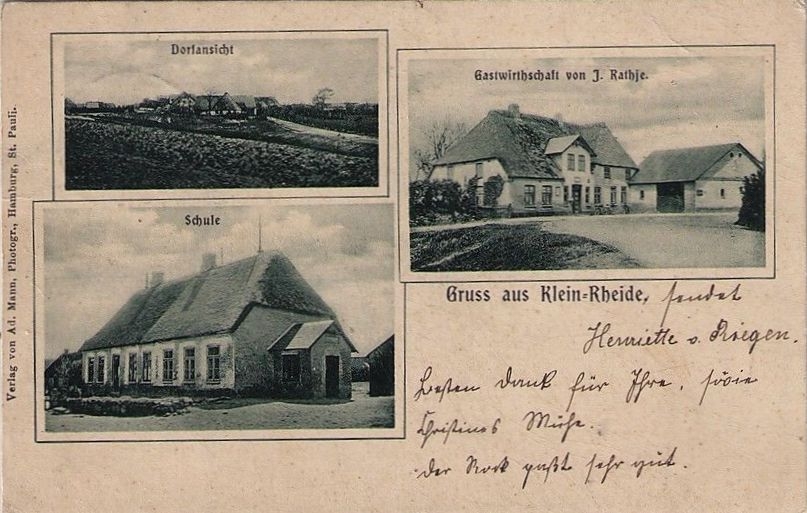 Dorfansicht
Gastwirthschaft von J. Rathje.
Schule
Verlag von Ad. Mann, Photogr., Hamburg, St. Pauli.
Gruss aus Klein=Rheide, sendet
Henriette v. Roegen.
Besten Dank für Ihre, sowie
Christines Mühe.
der Rock paßt sehr gut.